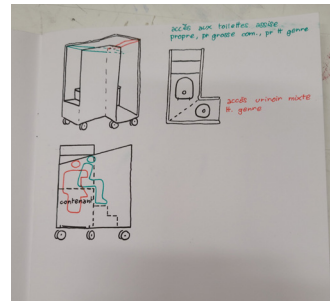 accès aux toilettes assise
propre, pr grosse com., pr tt genre
accès urinoir mixte
tt. genre
contenant